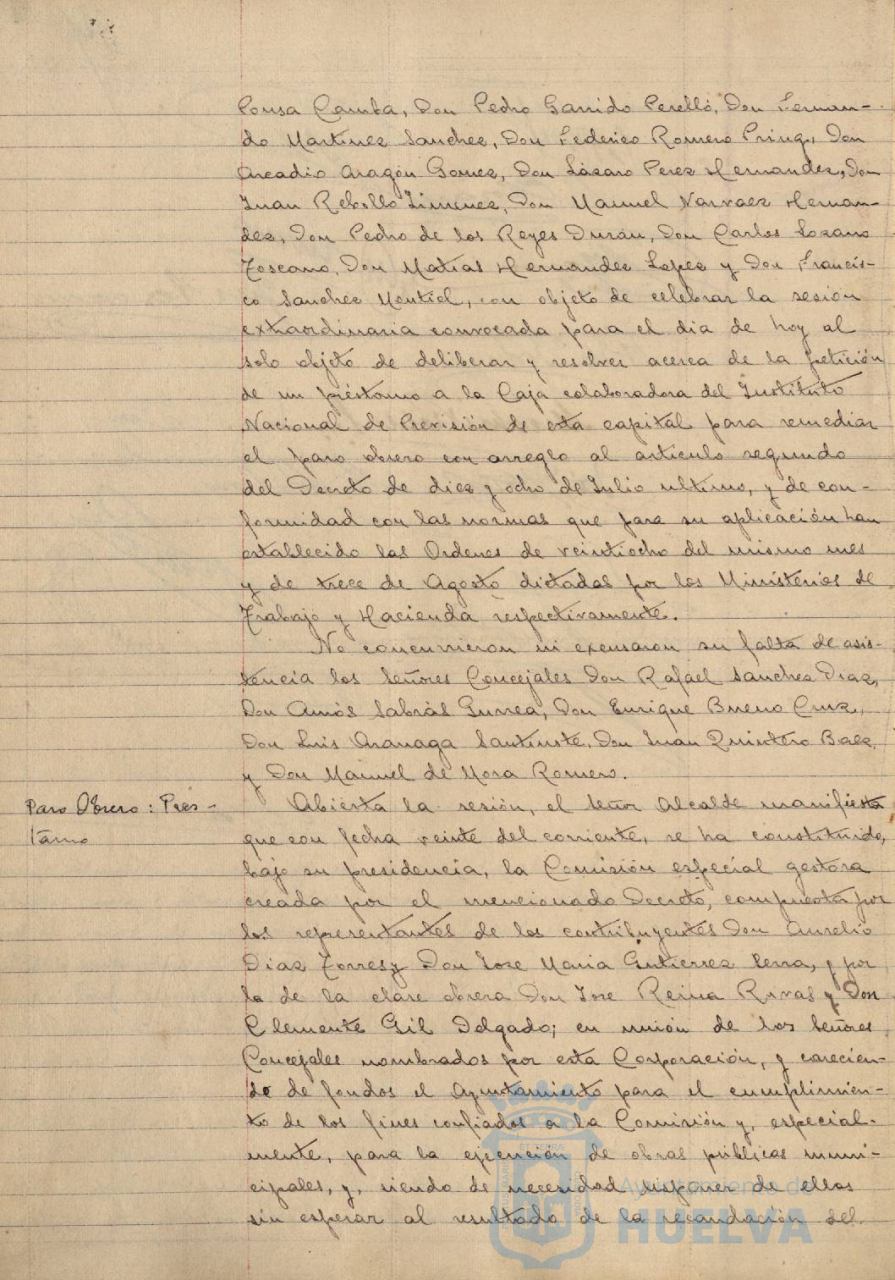 Ponsa Camba, Don Pedro Garrido Perelló, Don Fernan-
do Martinez Sanchez, Don Federico Romero Prinq, Don
Arcadio Aragón Gomez, Don Lázaro Perez Hernandez, Don
Juan Rebollo Jimenez, Don Manuel Narvaez Hernan-
dez, Don Pedro de los Reyes Durán, Don Carlos Lozano
Toscano, Don Matias Hernandez Lopez y Don Francis-
co Sanchez Montiel, con objeto de celebrar la sesión
extraordinaria convocada para el dia de hoy al
solo objeto de deliberar y resolver acerca de la petición
de un préstamo a la Caja colaboradora del Instituto
Nacional de Previsión de esta capital para remediar
el paro obrero con arreglo al articulo segundo
del Decreto de diez y ocho de Julio ultimo, y de con-
formidad con las normas que para su aplicación han
establecido las Ordenes de veintiocho del mismo mes
y de trece de Agosto dictadas por los Ministerios de
Trabajo y Hacienda respectivamente.
No concurrieron ni excusaron su falta de asis-
tencia los Señores Concejales Don Rafael Sanchez Diaz,
Don Amós Sabrás Gurrea, Don Enrique Bueno Cruz,
Don Luis Aranaga Santuste, Don Juan Quintero Baez
y Don Manuel de Mora Romero.
Paro Obrero: Prés-
tamo
Abierta la sesión, el Señor Alcalde manifiesta
que con fecha veinte del corriente, se ha constituido,
bajo su presidencia, la Comisión especial gestora
creada por el mencionado Decreto, compuesta por
los representantes de los contribuyentes Don Aurelio
Diaz Torres y Don Jose Maria Gutierrez Serra, y por
la de la clase obrera Don Jose Reina Rivas y Don
Clemente Gil Delgado; en unión de los Señores
Concejales nombrados por esta Corporación, y carecien-
do de fondos el Ayuntamiento para el cumplimien-
to de los fines confiados a la Comisión y, especial-
mente, para la ejecución de obras públicas muni-
cipales, y, siendo de necesidad disponer de ellos
sin esperar al resultado de la recaudación del
Ayuntamiento de
HUELVA